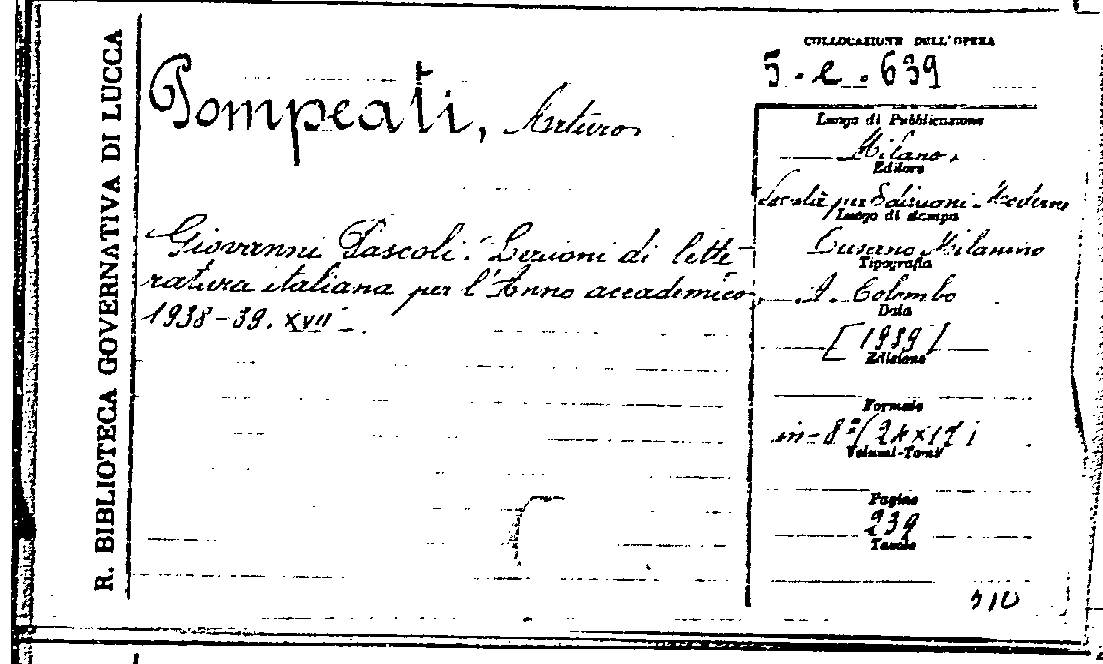 R. BIBLIOTECA GOVERNATIVA DI LUCCA
COLLOCAZIONE DELL'OPERA
5. e. 639
Pompeati, Arturo
Giovanni Pascoli. Lezioni di lette-
ratura italiana per l'Anno accademico
1938-39. XVII.
Luogo di Pubblicazione
Milano.
Editore
Società per Edizioni Moderne
Luogo di stampa
Cusano Milanino
Tipografia
Colombo
Data
[1939]
Edizione
Formato
in-8°
Volumi-Tomi
Pagine
239
Tavole